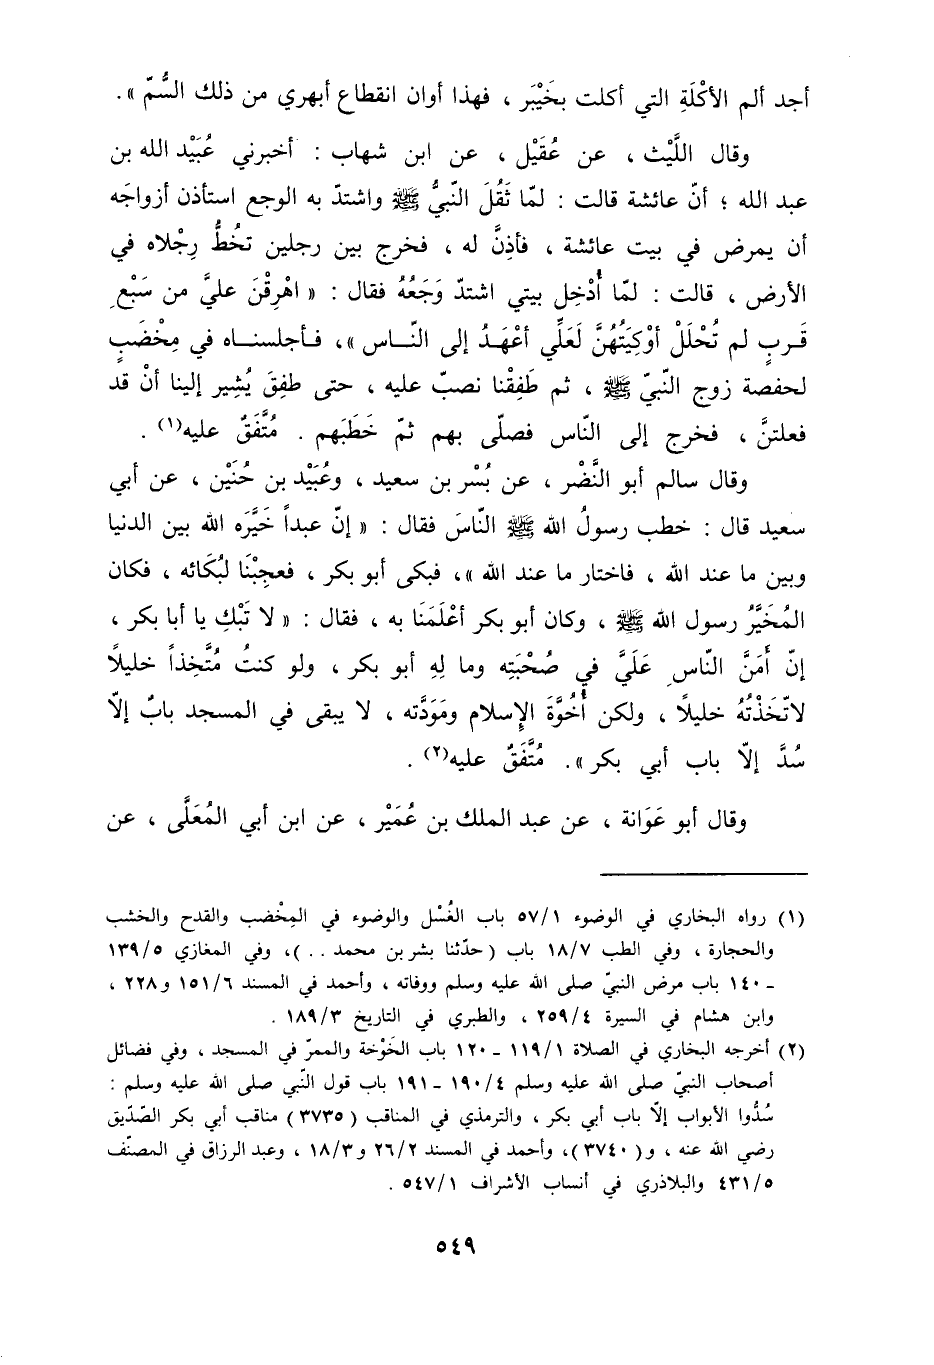 أجد ألم الأكْلَةِ التي أكلت بخَيْبَر ، فهذا أوان انقطاع أبهري من ذلك السُّمّ » .
وقال اللَّيْث ، عن عُقَيْل ، عن ابن شهاب : أخبرني عُبَيْد الله بن
عبد الله ؛ أنّ عائشة قالت : لمّا ثَقُلَ النّبيُّ ﷺ واشتدّ به الوجع استأذن أزواجَه
أن يمرض في بيت عائشة ، فأذِنَّ له ، فخرج بين رجلين تخُطُّ رِجْلاه في
الأرض ، قالت : لمّا أُدْخِل بيتي اشتدّ وَجَعُهُ فقال : « اهْرِقْنَ عليَّ من سَبْعِ
قَـربٍ لم تُحْلَلْ أوْكِيَتُهُنَّ لَعَلِّي أعْهَـدُ إلى النّـاس »، فـأجلسنـاه في مِخْضَبٍ
لحفصة زوج النّبيّ ﷺ ، ثم طَفِقْنا نصبّ عليه ، حتى طفِقَ يُشِير إلينا أنْ قد
فعلتنَّ ، فخرج إلى النّاس فصلّى بهم ثمّ خَطَبَهم . مُتَّفَقٌ عليه(١) .
وقال سالم أبو النَّضْر ، عن بُسْر بن سعيد ، وعُبَيْد بن حُنَيْن ، عن أبي
سعيد قال : خطب رسولُ الله ﷺ النّاسَ فقال : « إنّ عبداً خَيَّرَه الله بين الدنيا
وبين ما عند الله ، فاختار ما عند الله »، فبكى أبو بكر ، فعجِبْنَا لبُكَائه ، فكان
المُخَيَّرُ رسول الله ﷺ ، وكان أبو بكر أعْلَمَنَا به ، فقال : « لا تَبْكِ يا أبا بكر ،
إنّ أَمَنَّ النّاسِ عَلَيَّ في صُحْبَتِه وما لِهِ أبو بكر ، ولو كنتُ مُتَّخِذاً خليلاً
لاتّخَذْتُهُ خليلاً ، ولكن أُخُوَّةَ الإسلام ومَوَدَّته ، لا يبقى في المسجد بابٌ إلاّ
سُدَّ إلاّ باب أبي بكر ». مُتَّفَقٌ عليه(٢) .
وقال أبو عَوَانة ، عن عبد الملك بن عُمَيْر ، عن ابن أبي المُعَلَّى ، عن
(١) رواه البخاري في الوضوء ٥٧/١ باب الغُسْل والوضوء في المِخْضب والقدح والخشب
والحجارة ، وفي الطب ١٨/٧ باب (حدّثنا بشر بن محمد . . )، وفي المغازي ١٣٩/٥
- ١٤٠ باب مرض النبيّ صلى الله عليه وسلم ووفاته ، وأحمد في المسند ١٥١/٦ و٢٢٨ ،
وابن هشام في السيرة ٢٥٩/٤ ، والطبري في التاريخ ١٨٩/٣ .
(٢) أخرجه البخاري في الصلاة ١١٩/١ - ١٢٠ باب الخَوْخة والممرّ في المسجد ، وفي فضائل
أصحاب النبيّ صلى الله عليه وسلم ١٩٠/٤ - ١٩١ باب قول النّبي صلى الله عليه وسلم :
سُدُّوا الأبواب إلاّ باب أبي بكر ، والترمذي في المناقب (٣٧٣٥) مناقب أبي بكر الصّدّيق
رضي الله عنه ، و(٣٧٤٠)، وأحمد في المسند ٢٦/٢ و١٨/٣ ، وعبد الرزاق في المصنّف
٤٣١/٥ والبلاذري في أنساب الأشراف ٥٤٧/١ .
٥٤٩